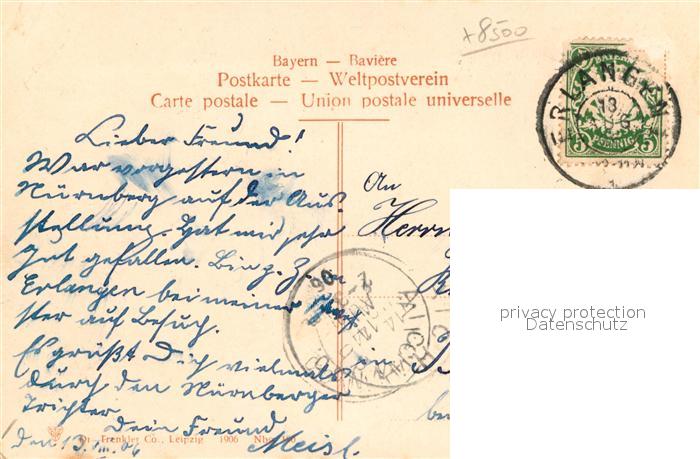 +8500
Bayern — Bavière
Postkarte — Weltpostverein
Carte postale — Union postale universelle
BAYERN
5 PFENNIG 5
ERLANGEN
Lieber Freund!
War vorgestern in
Nürnberg auf der Aus-
stellung. Hat mir sehr
gut gefallen. Bin z. Z. in
Erlangen bei meiner Schwe-
ster auf Besuch.
Es grüßt Dich vielmals
durch den Nürnberger
Trichter
Dein Freund
Meisl.
den 13. VIII. 06
An
Herrn
in
bei
Dr. Trenkler Co., Leipzig 1906
privacy protection
Datenschutz